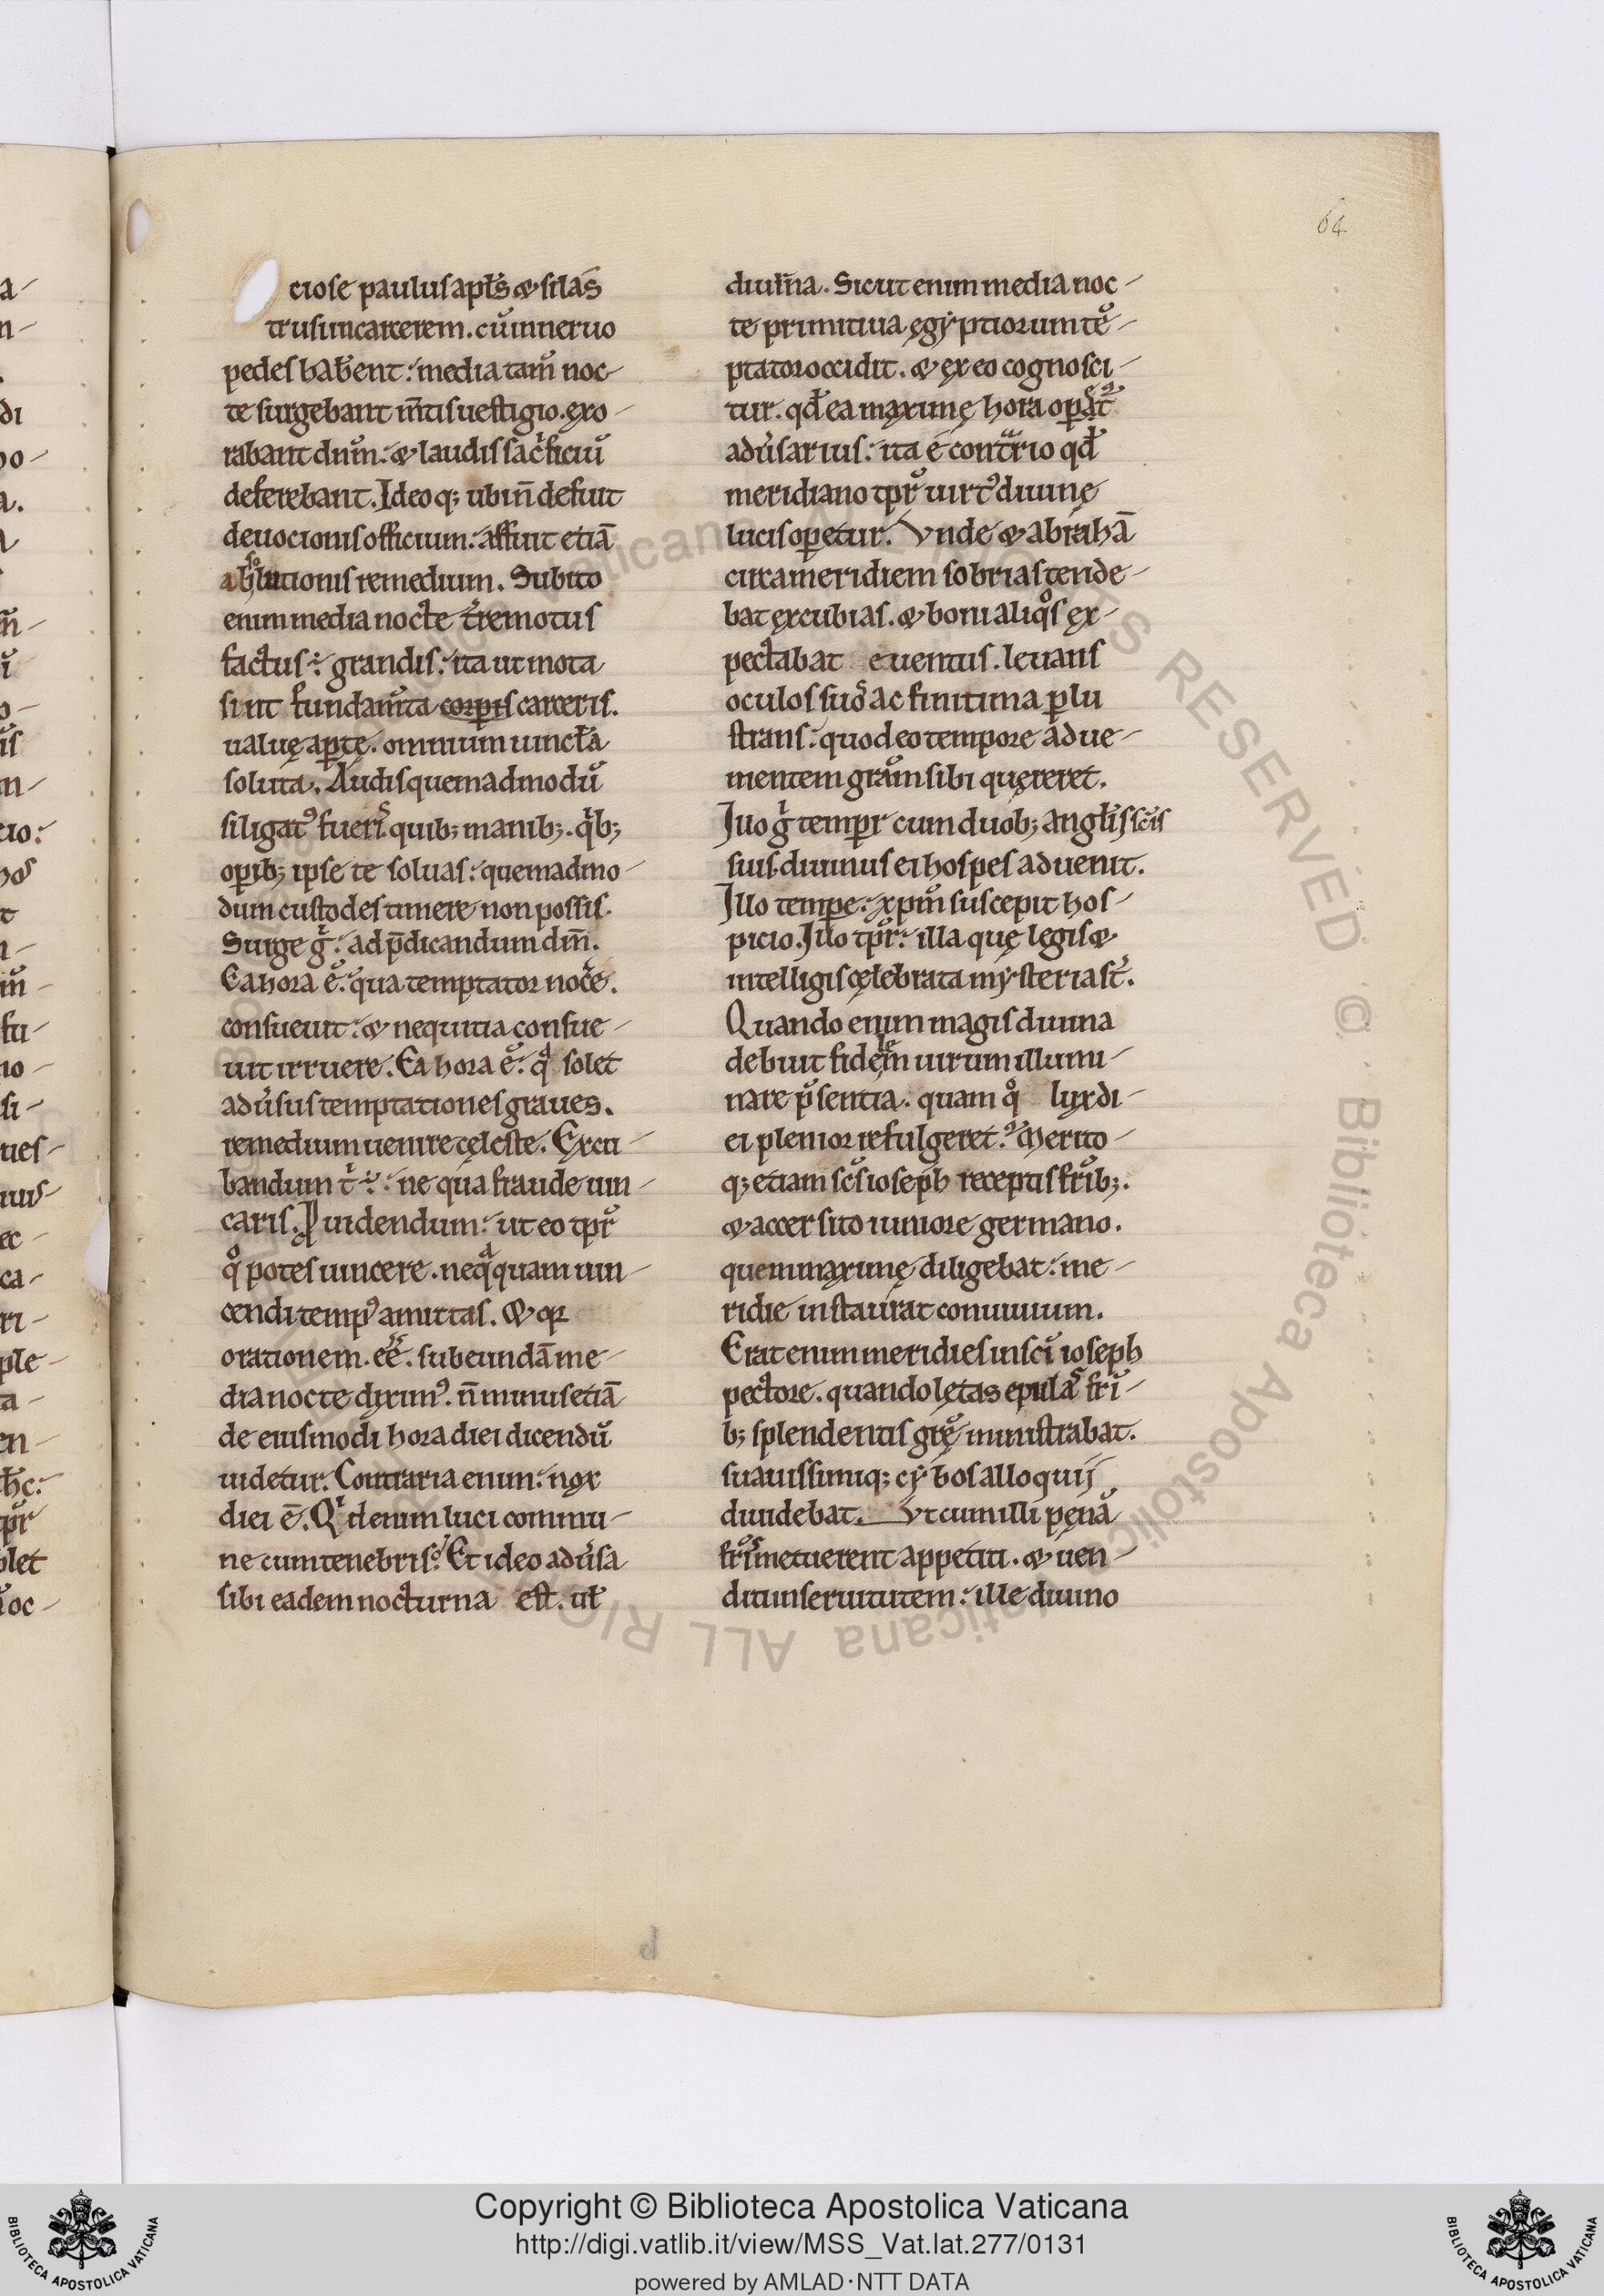 64
ciose paulus apl's & silas
trusi in carcerem. cū in neruo
pedes hab̄ent: media tam̄ noc-
te surgebant m̄tis uestigio. exo-
rabant dūm: & laudis sac̍ficiū
deferebant. Ideoq; ubi n̄ defuit
deuocionis officium: affuit etiā
remedium. Subito
enim media nocte t̍remotus
factus: grandis: ita ut mota
sint fundam̄ta corp̄is carceris.
ualuę apertę. omnium iuncta
soluta. Audis quemadmodū
si ligat⁹ fueris quib; manib;. q̍b;
op̄ib; ipse te soluas: quemadmo-
dum custodes timere non possis.
Surge g̍: ad p̄dicandum dm̄.
Ea hora ē: qua temptator noc̍e.
consueuit: & nequitia consue-
uit irruere. Ea hora ē: qᵃ solet
adu̍sus temptationes graues.
remedium uenire cęleste. Excu-
bandum t̍: ne qua fraude uin-
caris. P̱uidendum: ut eo tp̄r
qͦ potes uincere. neqᵃquam uin-
cendi temp⁹ amittas. & qr
orationem. eē. subeundā me-
dia nocte dixim⁹. n̄ minus etiā
de eiusmodi hora diei dicendū
uidetur. Contraria enim: nox
diei ē. Qⁱd enim luci commu-
ne cum tenebris? Et ideo adu̍sa
sibi eadem nocturna est. ul'
diur̄na. Sicut enim media noc-
te primitiua ęgyptiorum tē-
ptator occidit. & ex eo cognosci-
tur. qd' ea maximę hora op̄at̄
adu̍sarius: ita ē contᵃrio qd'
meridiano tp̄r uirt⁹ diuinę
lucis op̄etur. Vnde & abrahā
circa meridiem sobrias tende-
bat excubias. & boni aliqͦs ex-
pectabat euentus. leuans
oculos suos ac finitima p̱lu
strans: quo deo tempore adue-
nientem grām sibi quęreret.
Illo g̍ tempr cum duob; angl'is sc̄is
suis diuinus ei hospes aduenit.
Illo tempe: xpm̄ suscepit hos-
picio. Illo tp̄r: illa quę legis &
intelligis cęlebrata mysteria st̍.
Quando enim magis diuina
debuit fidelem uirum illumi-
nare p̄sentia. quam qͦ lux di-
ei plenior refulgeret? Merito-
q; etiam sc̄s ioseph receptis fr̄ib;.
& accersito iuniore germano.
quem maximę diligebat: me-
ridie instaurat conuiuium.
Erat enim meridies in sc̄i ioseph
pectore. quando lętas epulas fr̄i-
b; splendentis grę̄ ministrabat.
suauissimiq; cybos alloquij
diuidebat. Vt cum illi pęnā
fr̄is metuerent appetiti. & uen-
diti in seruitutem: ille diuino
Copyright © Biblioteca Apostolica Vaticana
http://digi.vatlib.it/view/MSS_Vat.lat.277/0131
powered by AMLAD·NTT DATA
BIBLIOTECA APOSTOLICA VATICANA
BIBLIOTECA APOSTOLICA VATICANA